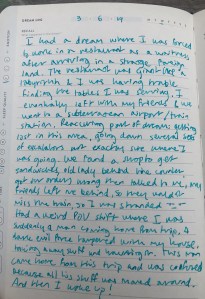 DREAM LOG
3 · 6 · 19
I had a dream where I was forced
to work in a restaurant as a waitress
after arriving in a strange foreign
land. The restaurant was giant like a
labyrinth & I was having trouble
finding the tables I was serving. I
eventually left with my friends & we
went to a subterranean airport/train
station. Reoccurring part of dreams getting
lost in this area, going down several sets
of escalators, not exactly sure where I
was going. We found a shop to get
sandwiches, old lady behind the counter
got our orders wrong then talked to me, my
friends left me behind, so they wouldn't
miss the train, so I was stranded
Had a weird POV shift where I was
suddenly a man coming home from trip, &
some evil force tampered with my house,
moving away stuff and haunting. This man
came home from his trip and was confused
because all his stuff was moved around.
And then I woke up!